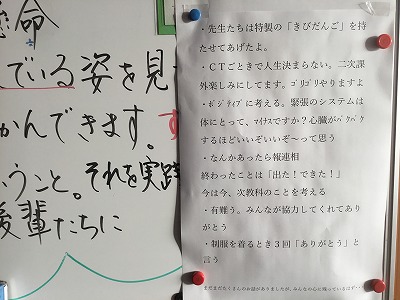 命
んでいる姿を見
かんできます。
うこと。それを実践
後輩たちに
・先生たちは特製の「きびだんご」を持
たせてあげたよ。
・CTごときで人生決まらない。二次課
外楽しみにしてます。ゴリゴリやりますよ
・ポジティブに考える。緊張のシステムは
体にとって、マイナスですか？心臓がバクバク
するほどいいぞいいぞ～って思う
・なんかあったら報連相
終わったことは「出た！できた！」
今は今、次教科のことを考える
・有難う。みんなが協力してくれてあり
がとう
・制服を着るとき３回「ありがとう」と
言う
まだまだたくさんのお話がありましたが、みんなの心に残っているはず・・